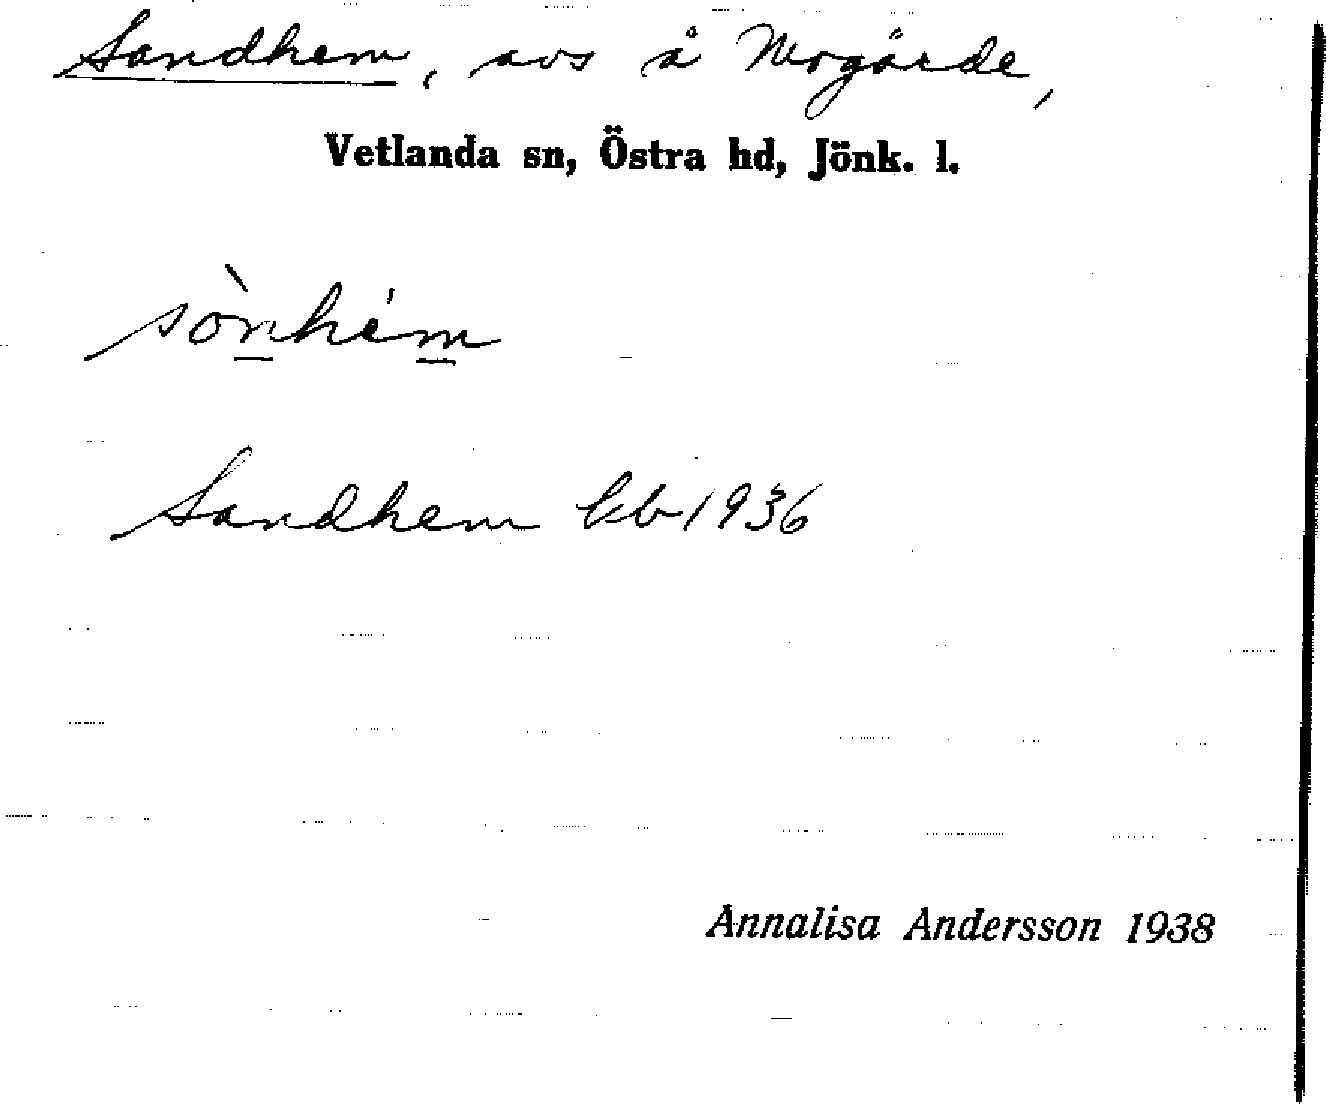 Sandhem, avs å Mogärde,
Vetlanda sn, Östra hd, Jönk. l.
sònhém
Sandhem kb 1936
Annalisa Andersson 1938